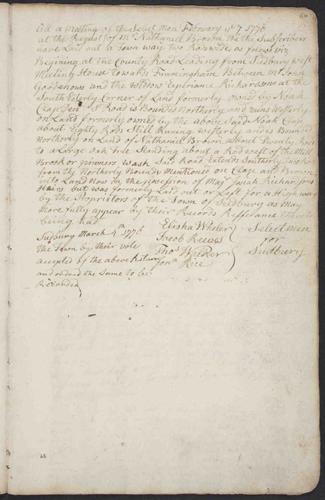 At a meeting of the Select Men February ye 7 1776
at the Request of Mr Nathaniel Brown We the Subscribers
have Laid out a Town way two Rods wide as follows viz
Begining at the County Road Leading from Sudbury west
Meeting House towards Framingham Between Mr John
Goodenows and the widow Richardsons at the
South Corner of Land formerly owned by Noah
Clap Road is Bounded Northerly and runs Westerly
on Land formerly owned by the above Said Noah Clap
about Eighty Rods Still Runing westerly and is Bounded
Northerly on Land of Nathaniel Brown about Twenty Rods
to a Large oak tree Standing about a Rod west of the Mill
Brook or wash Said Road Extends Southerly two Rods
from the Northerly Bounds Mentioned on Clap and Brown
unto Land Now in the possession of Maj Josiah Richardson
but was formerly Laid out or Left for a High way
by the Proprietors of the Town of Sudbury as May
More fully appear by their Records Refferance thereto
being had
Elisha Wheler
Jacob Reeves
Select Men
for
Sudbury
Sudbury March 4th 1776
the Town by their vote
accepted of the above Return
and ordered the Same to be
Recorded
Rice